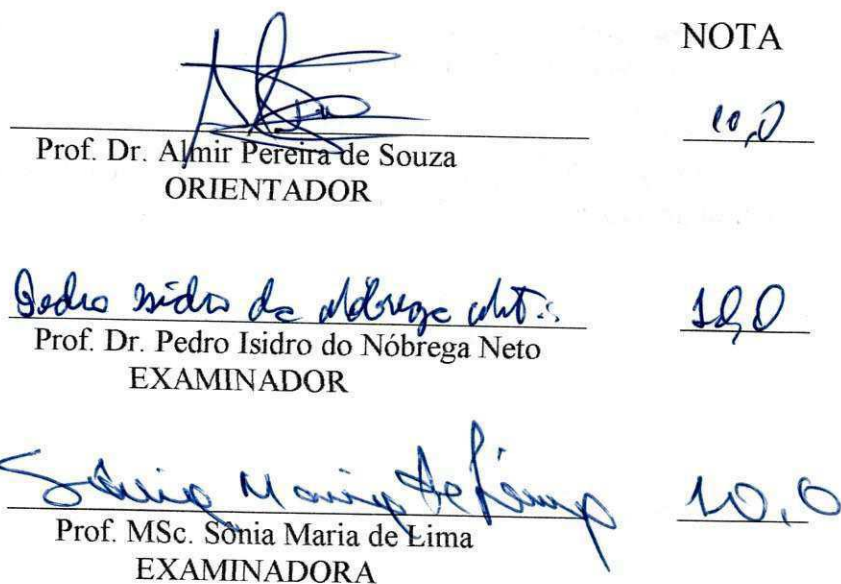 NOTA
10,0
Prof. Dr. Almir Pereira de Souza
ORIENTADOR
Pedro Isidro da Nóbrega Neto 10,0
Prof. Dr. Pedro Isidro do Nóbrega Neto
EXAMINADOR
Sônia Maria de Lima 10,0
Prof. MSc. Sônia Maria de Lima
EXAMINADORA